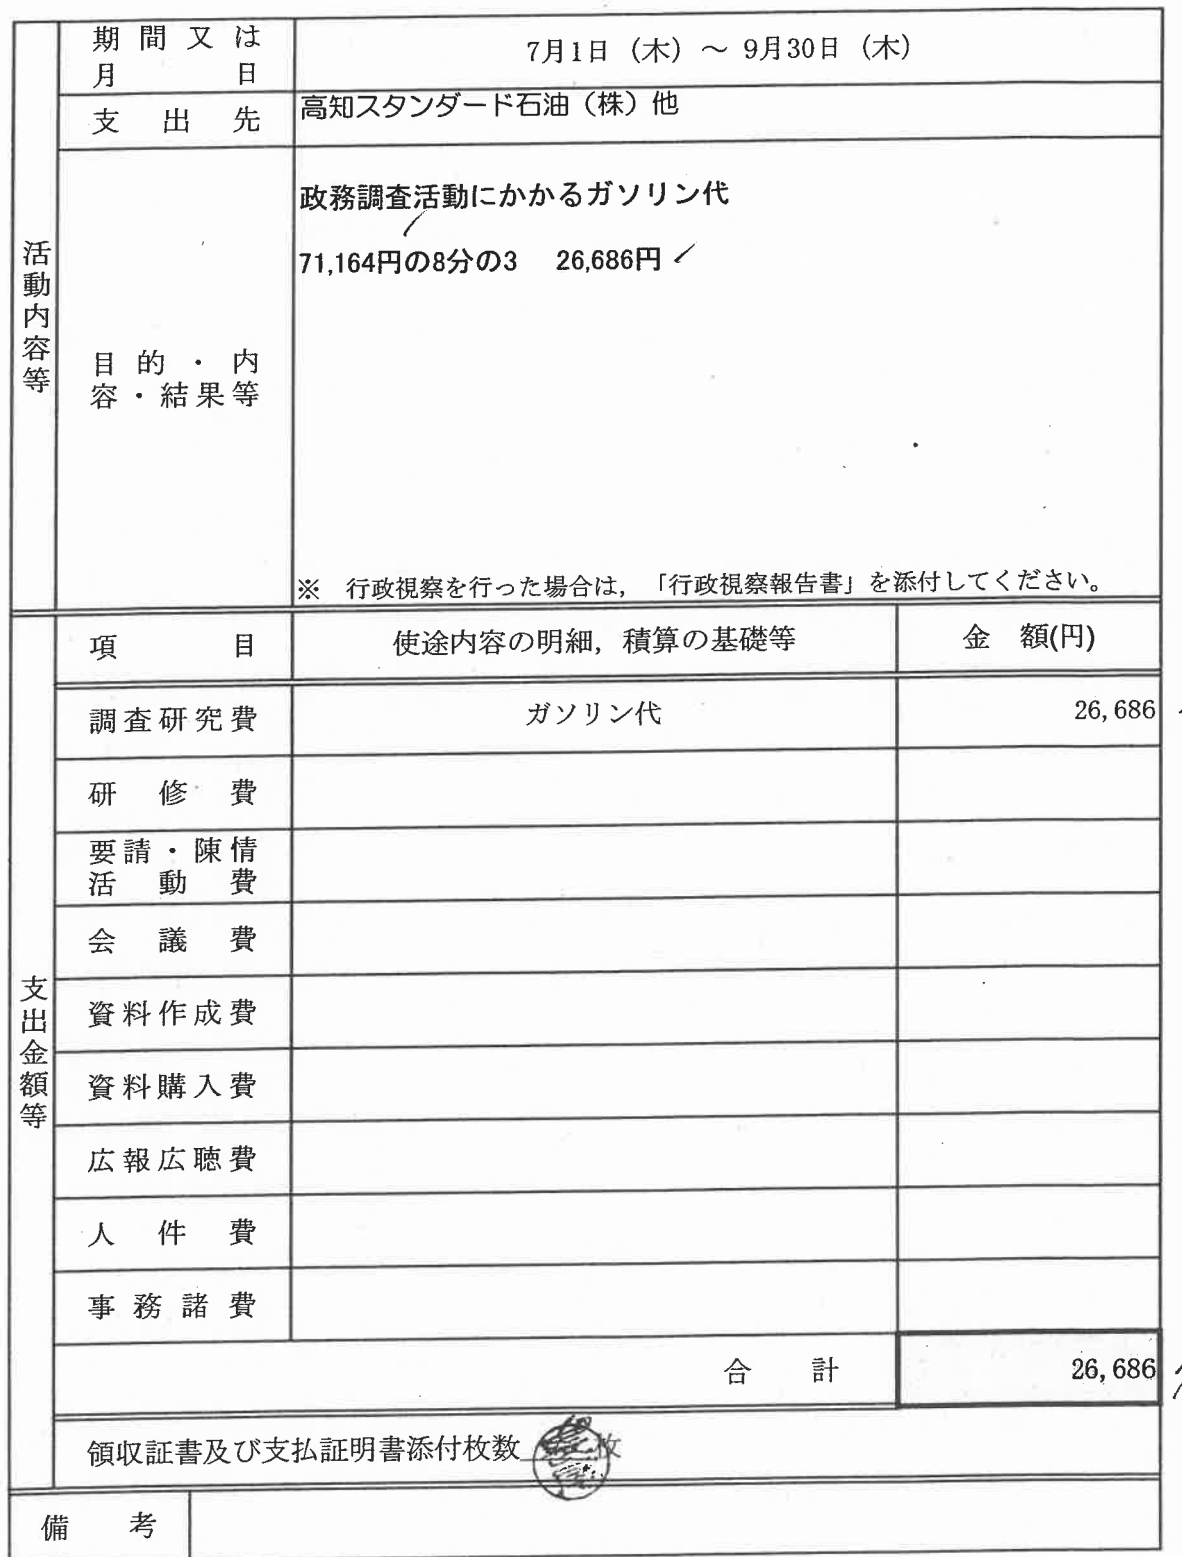 活動内容等
期間又は
月 日
7月1日（木）～9月30日（木）
支出先
高知スタンダード石油（株）他
目的・内
容・結果等
政務調査活動にかかるガソリン代
71,164円の8分の3 26,686円
※ 行政視察を行った場合は，「行政視察報告書」を添付してください。
支出金額等
項 目
使途内容の明細，積算の基礎等
金 額(円)
調査研究費
ガソリン代
26,686
研修費
要請・陳情
活動費
会議費
資料作成費
資料購入費
広報広聴費
人件費
事務諸費
合計
26,686
領収証書及び支払証明書添付枚数 枚
備考